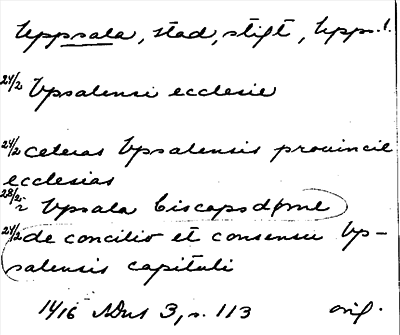 Uppsala, stad, stift, Upps. l.
24/2 Vpsalensi ecclesie
24/2 ceteras Vpsalensis prouincie
ecclesias
28/2 Vpsala biscopsdøme
24/2 de concilio et consensu Vp-
salensis capituli
1416 SDns 3, s. 113 orig.